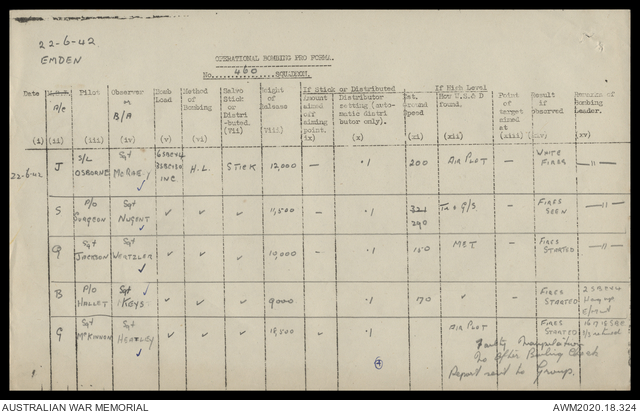 22-6-42
EMDEN
OPERATIONAL BOMBING PRO FORMA.
No. 460 SQUADRON.
Date A/C Pilot Observer or B/A Bomb Load Method of Bombing Salvo Stick or Distri-buted. Height of Release If Stick or Distributed Amount aimed off aiming point. Distributor setting (auto-matic distri butor only). Est. Ground Speed If High Level How U.S & D found. Point of target aimed at Result if observed Remarks of Bombing Leader.
(i) (ii) (iii) (iv) (v) (vi) (vii) (viii) ix (x) (xi) (xii) (xiii) (xv)
22-6-42 J S/L OSBORNE Sgt H.L. STICK 12,000 — .1 200 AIR PLOT — WHITE FIRES —"—
S P/O SURGEON Sgt NUGENT ✓ ✓ ✓ 11,500 — .1 321 240 G/S — FIRES SEEN —"—
G Sgt JACKSON Sgt WERTZLER ✓ ✓ ✓ 10,000 — .1 150 MET — FIRES STARTED —"—
B P/O HALLET Sgt KEYS ✓ ✓ ✓ 9000 — .1 170 " — FIRES STARTED Hang up
G Sgt McKINNON Sgt HEATLEY ✓ ✓ ✓ 18,500 .1 AIR PLOT FIRES STARTED returned
Faulty Manipulation
No After Bombing Check
Report sent to Group.
AUSTRALIAN WAR MEMORIAL
AWM2020.18.324